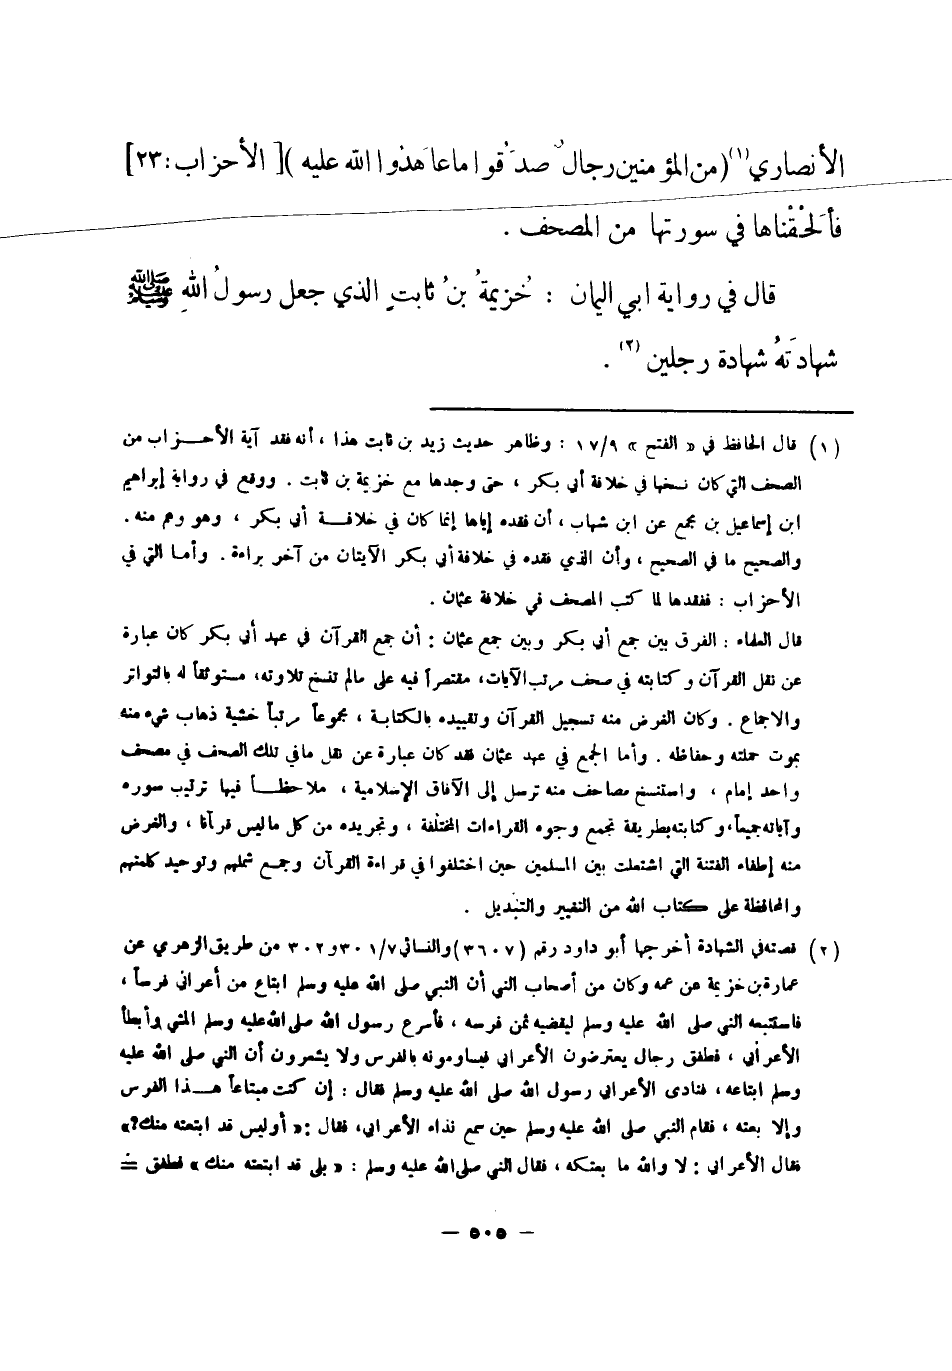 الأنصاري (١) ( من المؤمنين رجالٌ صدَقُوا ما عاهَدُوا اللهَ عليه ) [ الأحزاب : ٢٣ ]
فأَلحَقْناها في سورتها من المصحف .
قال في رواية ابي اليمان : خُزيمةُ بنُ ثابتٍ الذي جعل رسولُ اللهِ ﷺ
شهادَتَهُ شهادة رجلين (٢) .
(١) قال الحافظ في « الفتح » ١٧/٩ : وظاهر حديث زيد بن ثابت هذا ، أنه فقد آية الأحزاب من
الصحف التي كان نسخها في خلافة أبي بكر ، حتى وجدها مع خزيمة بن ثابت . ووقع في رواية إبراهيم
ابن إسماعيل بن مجمع عن ابن شهاب ، أن فقده إياها إنما كان في خلافة أبي بكر ، وهو وهم منه .
والصحيح ما في الصحيح ، وأن الذي فقده في خلافة أبي بكر الآيتان من آخر براءة . وأما التي في
الأحزاب : ففقدها لما كتب المصحف في خلافة عثمان .
قال العلماء : الفرق بين جمع أبي بكر وبين جمع عثمان : أن جمع القرآن في عهد أبي بكر كان عبارة
عن نقل القرآن وكتابته في صحف مرتب الآيات، مقتصراً فيه على مالم تنسخ تلاوته، مستوثقاً له بالتواتر
والاجماع . وكان الغرض منه تسجيل القرآن وتقييده بالكتابة ، مجموعاً مرتباً خشية ذهاب شيء منه
بموت حملته وحفاظه . وأما الجمع في عهد عثمان فقد كان عبارة عن نقل ما في تلك الصحف في مصحف
واحد إمام ، واستنسخ مصاحف منه ترسل إلى الآفاق الإسلامية ، ملاحظاً فيها ترتيب سوره
وآياته جميعاً، وكتابته بطريقة تجمع وجوه القراءات المختلفة ، وتجريده من كل ما ليس قرآنا ، والغرض
منه إطفاء الفتنة التي اشتعلت بين المسلمين حين اختلفوا في قراءة القرآن وجمع شملهم وتوحيد كلمتهم
والمحافظة على كتاب الله من التغيير والتبديل .
(٢) قصته في الشهادة أخرجها أبو داود رقم (٣٦٠٧) والنسائي ٣٠١/٧ و ٣٠٢ من طريق الزهري عن
عمارة بن خزيمة عن عمه وكان من أصحاب النبي أن النبي صلى الله عليه وسلم ابتاع من أعرابي فرساً ،
فاستتبعه النبي صلى الله عليه وسلم ليقضيه ثمن فرسه ، فأسرع رسول الله صلى الله عليه وسلم المشي وأبطأ
الأعرابي ، فطفق رجال يعترضون الأعرابي فيساومونه بالفرس ولا يشعرون أن النبي صلى الله عليه
وسلم ابتاعه ، فنادى الأعرابي رسول الله صلى الله عليه وسلم فقال : إن كنت مبتاعاً هذا الفرس
وإلا بعته ، فقام النبي صلى الله عليه وسلم حين سمع نداء الأعرابي، فقال :« أوليس قد ابتعته منك؟»
فقال الأعرابي : لا والله ما بعتكه ، فقال النبي صلى الله عليه وسلم : « بلى قد ابتعته منك » فطفق =
— ٥٠٥ —